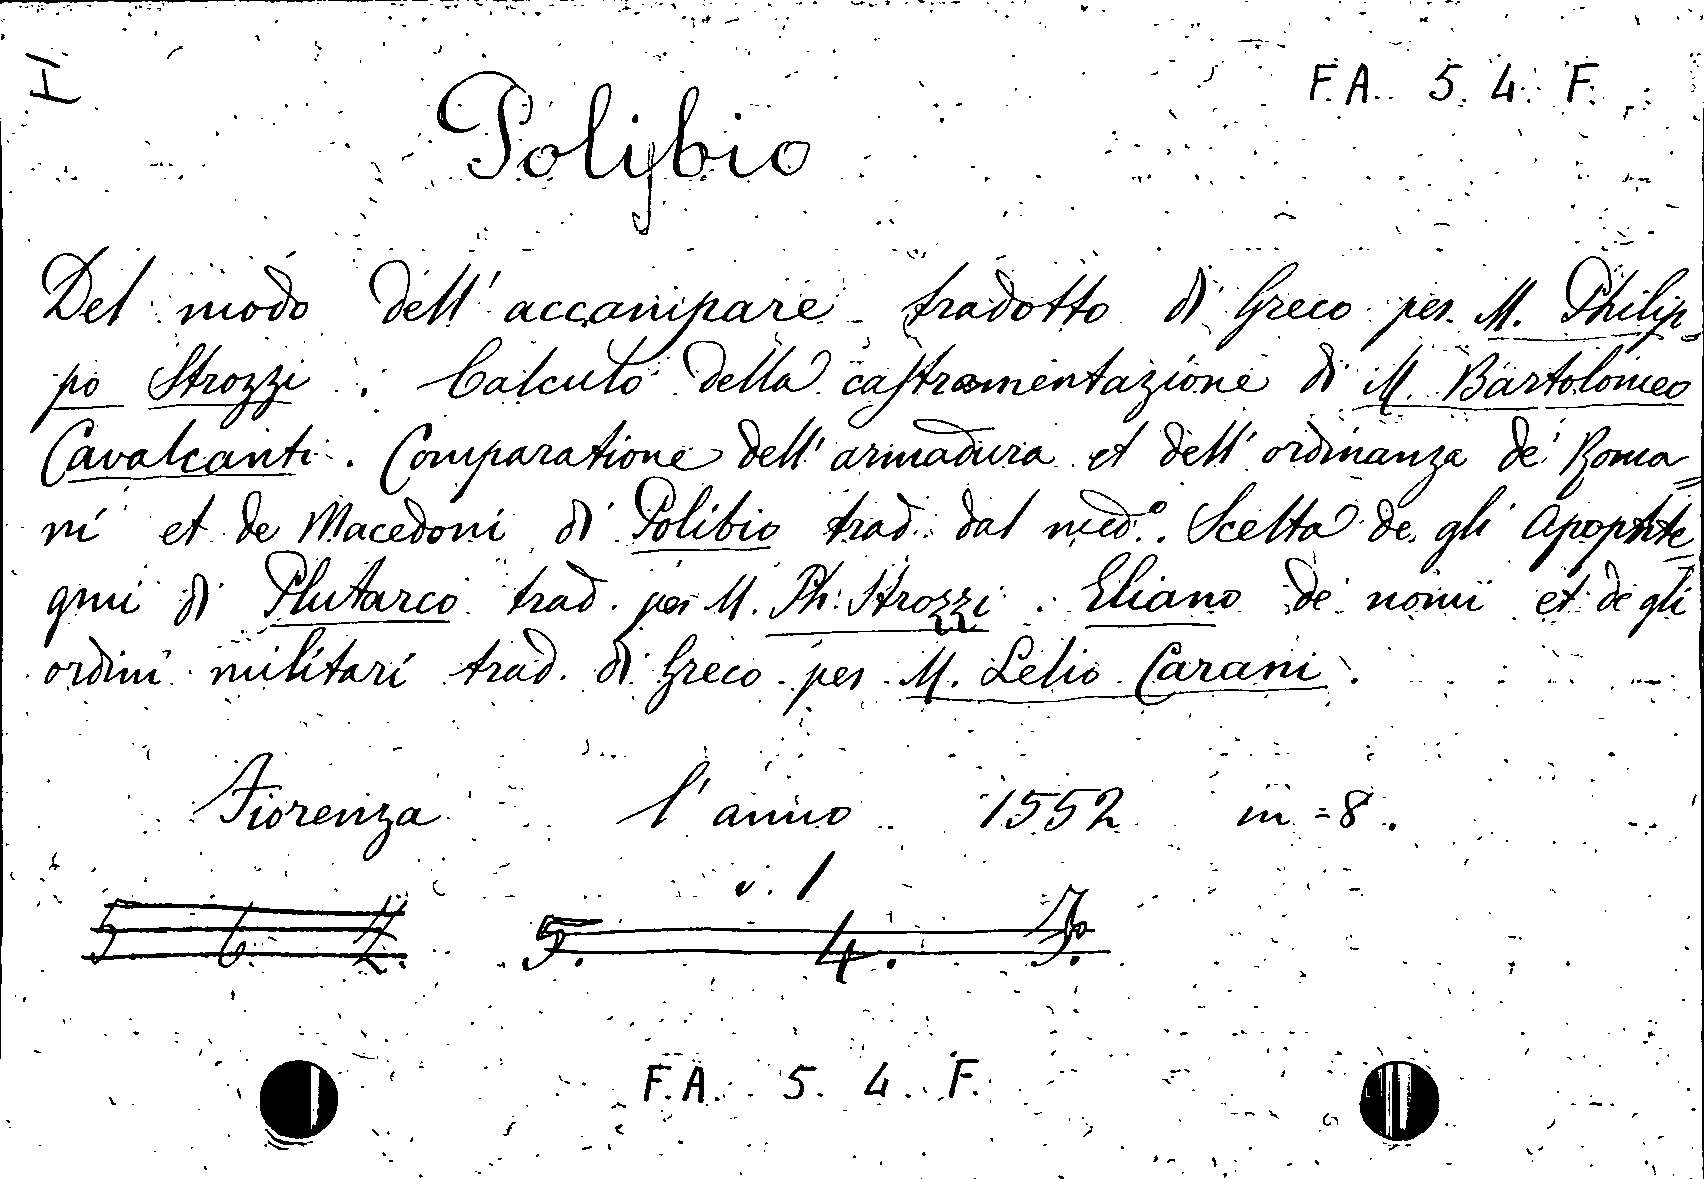 H
F.A. 5. 4. F.
Polybio
Del modo dell'accampare tradotto di Greco per M. Philip=
po Strozzi. Calculo della castramentazione di M. Bartolomeo
Cavalcanti. Comparatione dell'armadura et dell'ordinanza de' Roma=
ni et de Macedoni di Polibio trad. dal med.º. Scelta de gli Apophte=
gmi di Plutarco trad. per M. Ph: Strozzi. Eliano de nomi et de gli
ordini militari trad. di Greco per M. Lelio Carani.
Fiorenza l'anno 1552 in=8.
v. 1
5 6 5. 4.
F.A. 5. 4. F.